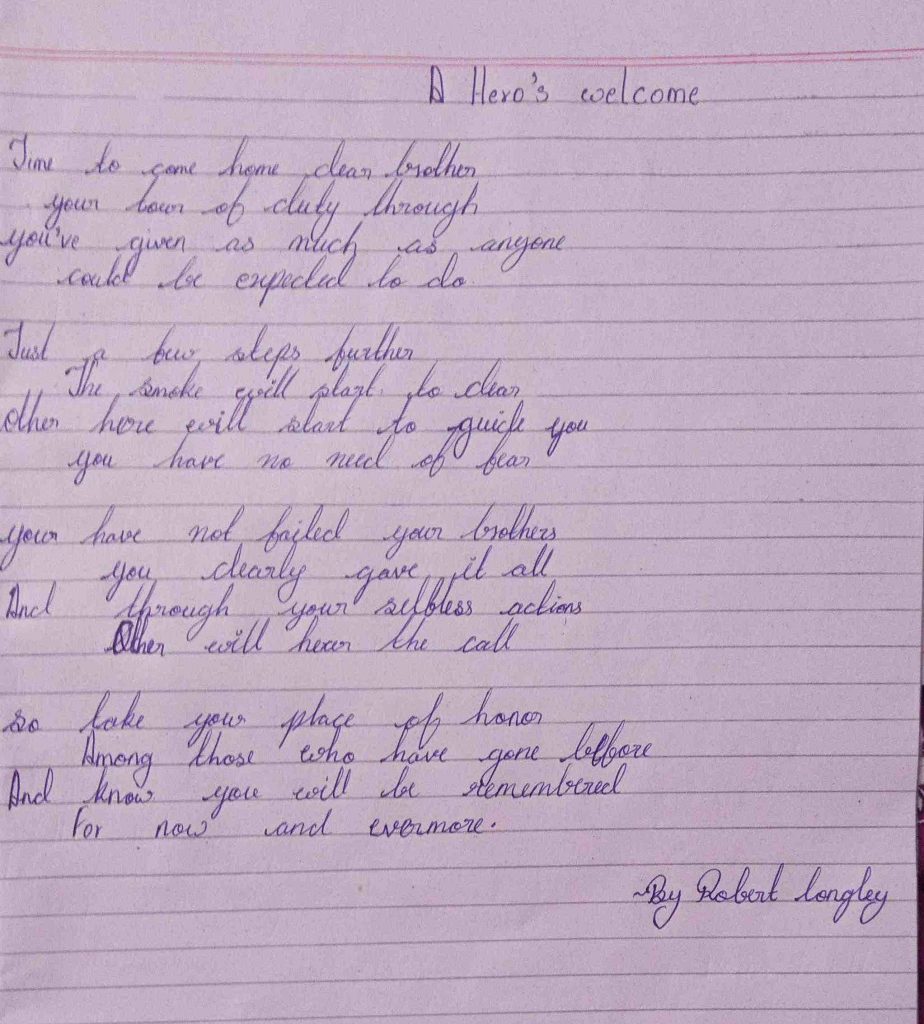 A Hero's welcome
Time to come home dear brother
your tour of duty through
you've given as much as anyone
could be expected to do.
Just a few steps further
The smoke will start to clear
Other here will start to guide you
you have no need of fear
your have not failed your brothers
you clearly gave it all
And through your selfless actions
Other will hear the call
so take your place of honor
Among those who have gone before
And know you will be remembered
For now and evermore.
~By Robert longley